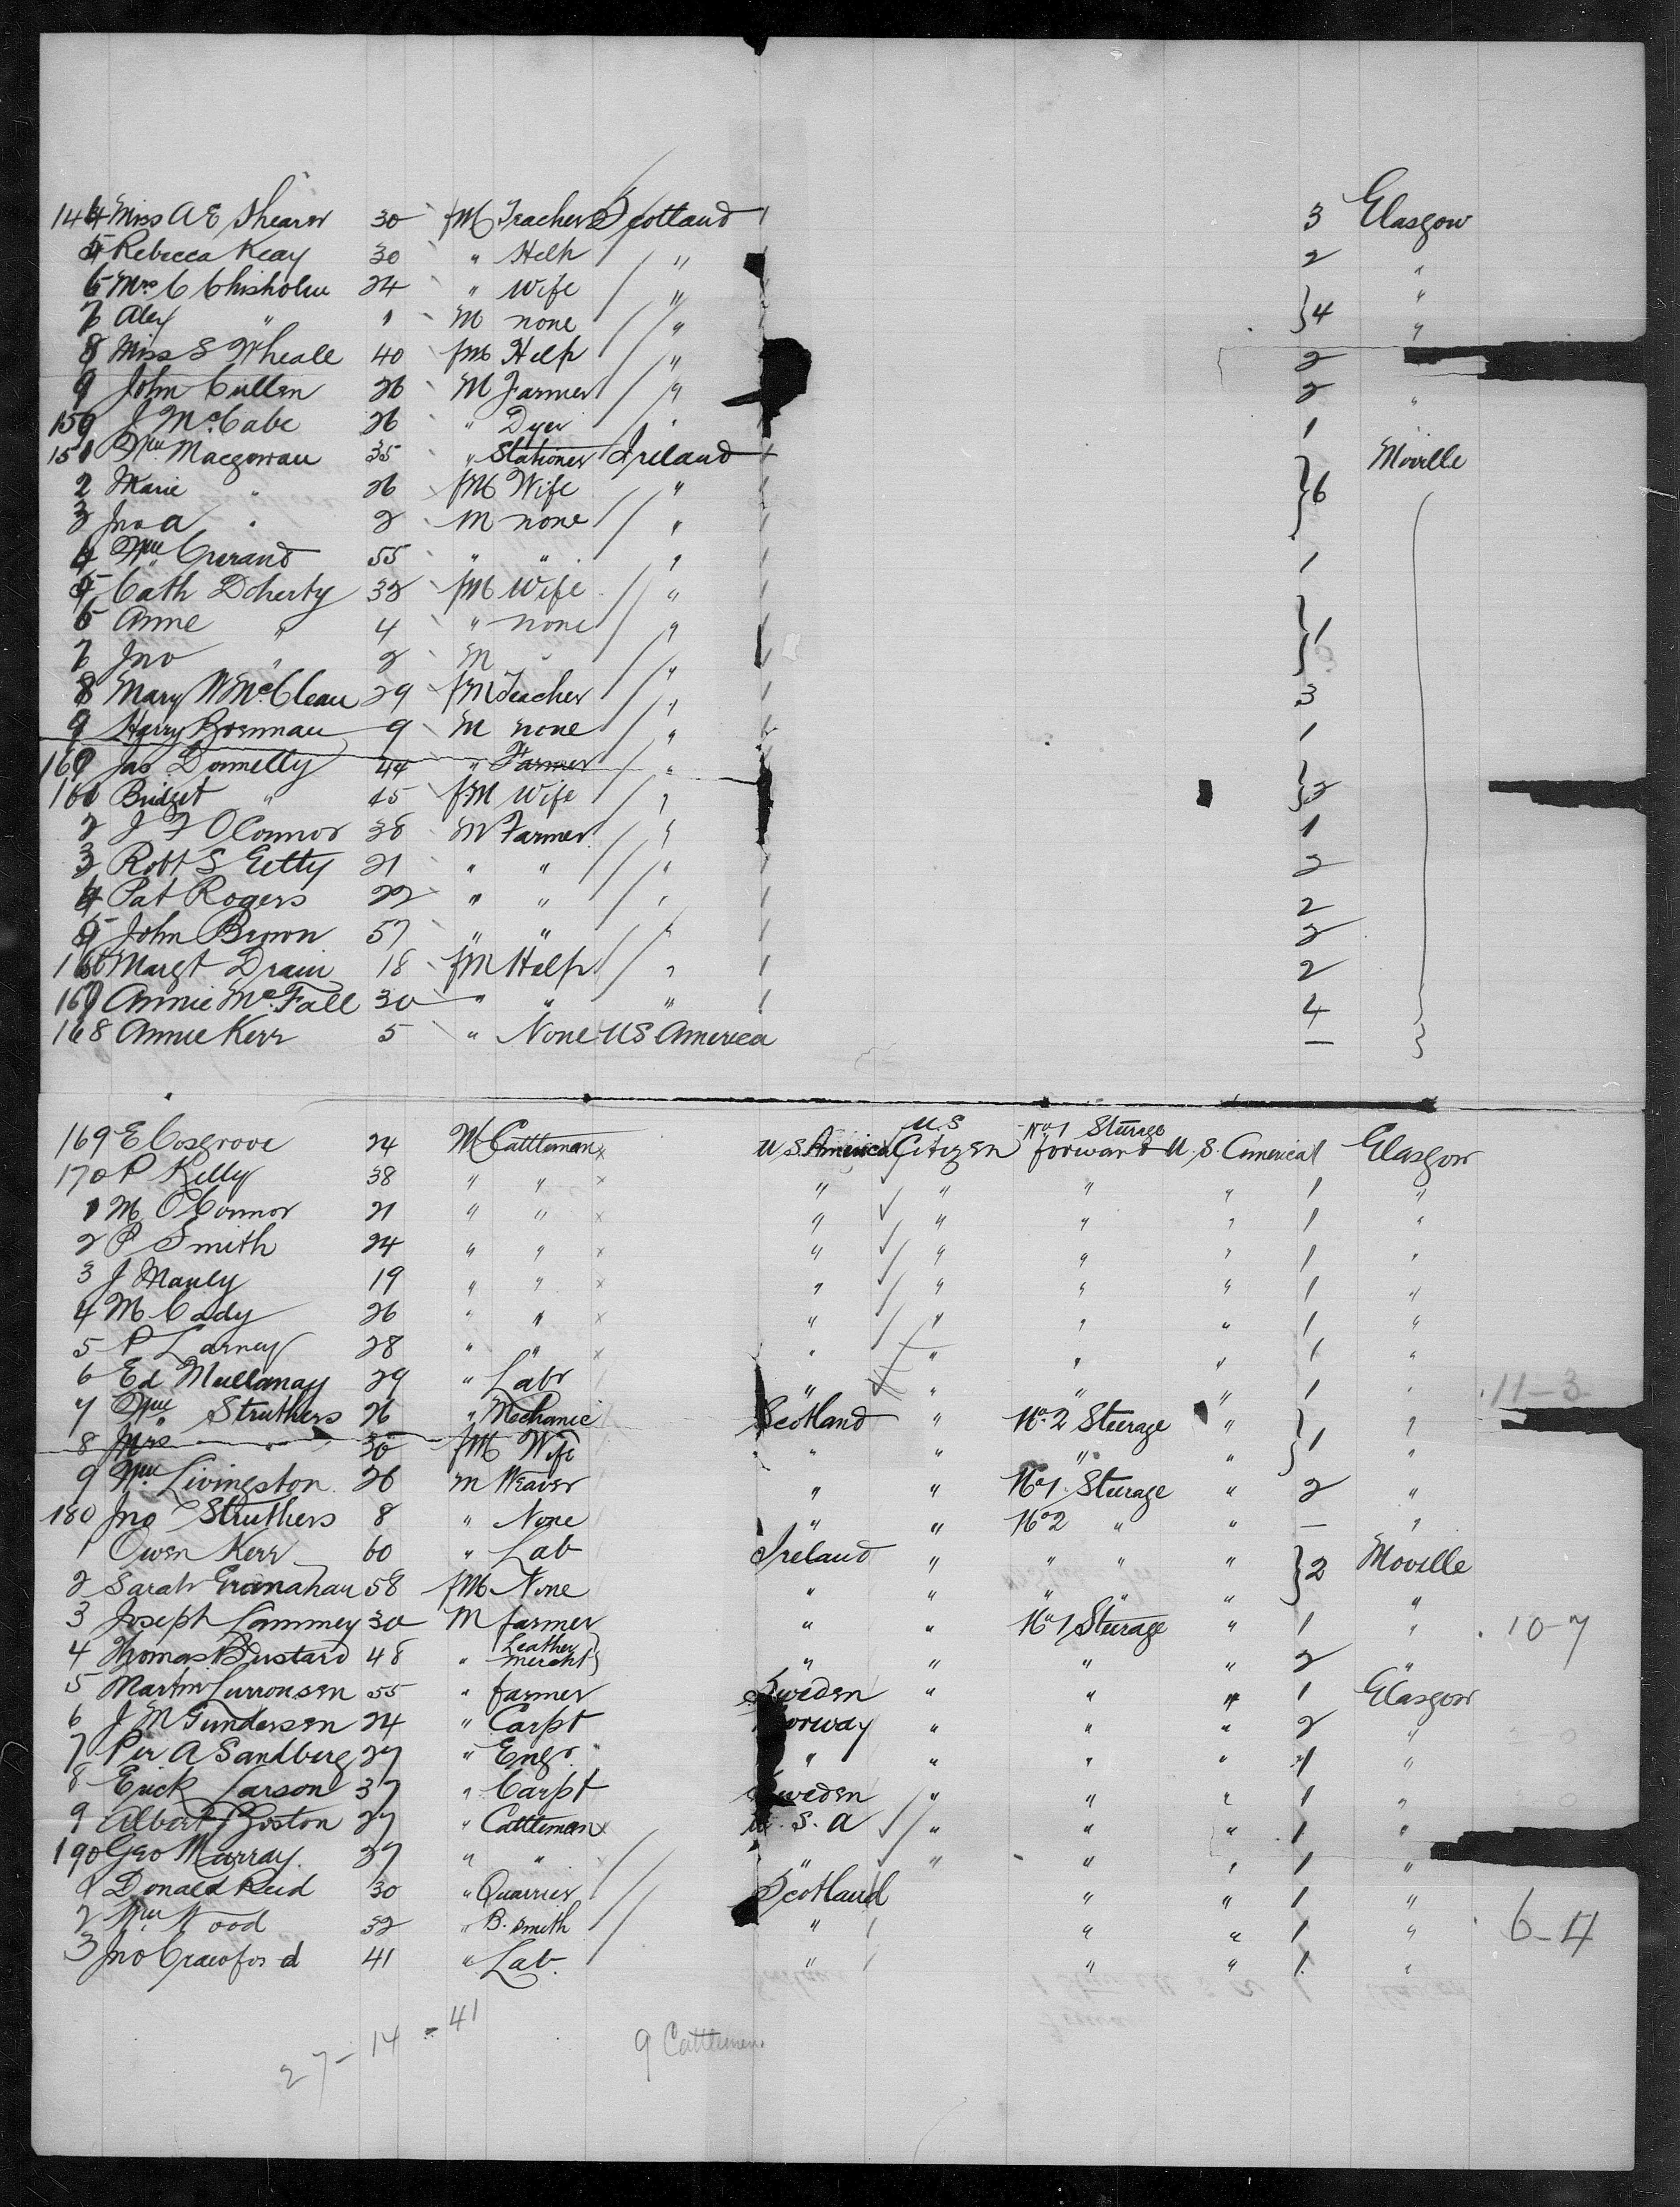 144 Miss A E Shearer 30 fM Teacher Scotland 3 Glasgow
5 Rebecca Keay 30 " Help " 2 "
6 Mrs C Chisholm 24 " Wife " } 4 "
7 Alex " 1 M none " "
8 Miss S Wheale 40 fM Help " 2
9 John Cullen 26 M Farmer " 2 "
150 J McCabe 26 " Dyer " 1
151 Wm Macgowan 35 " Stationer Ireland } 6 Moville
2 Marie " 26 fM Wife "
3 Jno A " 2 M none "
4 Wm 55 " " " 1
5 Cath Doherty 32 fM Wife "
6 Anne " 4 " none " } 1
7 Jno " 2 M " "
8 Mary W McClean 29 fM Teacher " 3
9 Harry Brennan 9 M none " 1
160 Jas Donnelly 44 " Farmer " } 2
161 Bridget " 45 fM Wife "
2 J F OConnor 38 M Farmer " 1
3 Robt S Getty 21 " " " 2
4 Pat Rogers 22 " " " 2
5 John Brown 57 " " " 2
166 Margt Drain 18 fM Help " 2
167 Annie McFall 30 " " " 4
168 Annie Kerr 5 " None US America —
169 E Cosgrove 24 M Cattleman x U S America U S Citizen No 1 Sturage forward U. S. America 1 Glasgow
170 P Kelly 38 " " x " " " " 1 "
1 M OConnor 21 " " x " " " " 1 "
2 P Smith 24 " " x " " " " 1 "
3 J Manly 19 " " x " " " " 1 "
4 M Cady 26 " " x " " " " 1 "
5 P Larney 28 " " x " " " " 1 "
6 Ed Mullanay 29 " Labr " " " " 1 " 11-3
7 Wm Struthers 26 " Mechanic Scotland " No 2 Steerage " } 1 "
8 Mrs " 30 fM Wife " " " " "
9 Wm Livingston 26 M Weaver " " No 1 Steerage " 2 "
180 Jno Struthers 8 " None " " No 2 " " — "
1 Owen Kerr 60 " Lab Ireland " " " " } 2 Moville
2 Sarah Granahan 58 fM None " " " " " "
3 Joseph Lammey 30 M farmer " " No 1 Steerage " 1 " 10-7
4 Thomas Bustard 48 " Leather Mercht " " " " 2 "
5 Martin 55 " farmer Sweden " " " 1 Glasgow
6 J M Gundersen 24 " Carpt Norway " " " 2 "
7 Per A Sandberg 27 " Engr " " " " 1 "
8 Erick Larson 37 " Carpt Sweden " " " 1 "
9 Albert Boston 27 " Cattleman x U. S. A " " " 1 "
190 Geo Murray 37 " " x " " " " 1 "
1 Donald Reid 30 " Quarrier Scotland " " 1 "
2 Wm Wood 52 " B. Smith " " " 1 " 6-4
3 Jno Crawford 41 " Lab. " " " 1 "
27-14-41
9 Cattlemen.